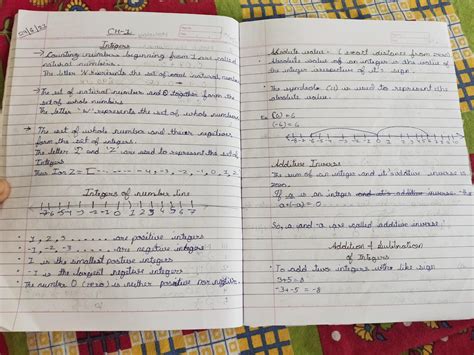 CH-1
Integers
→ Counting numbers beginning from 1 are called
natural numbers.
The letter 'N' represents the set of natural numbers
→ The set of natural number and 0 together form the
set of whole numbers
The letter 'W' represents the set of whole numbers
→ The set of whole number and their
form the set of integers.
The letter I and 'Z' are used to represent the set of
Integers
I or Z =
Integers of number line
-7 -6 -5 -4 -3 -2 -1 0 1 2 3 4 5 6 7
• 1, 2, 3 ...... are positive integers
• -1, -2, -3 ...... are negative integers
• 1 is the smallest positive integers
• -1 is the largest negative integers
• The number 0 (zero) is neither positive nor negative.
Absolute value = (exact distance from zero)
Absolute value of an integer is the value of
the integer irrespective of it's sign.
The symbole is used to represent the
absolute value.
Ex
=6
=6
Additive Inverse
The sum of an integer and it's additive inverse is
zero.
If a is an integer the
a+(-a) = 0
So, a and -a are called additive inverse
Addition &
of Integers
• To add two integers with like sign
3+5=8
-3+-5 = -8